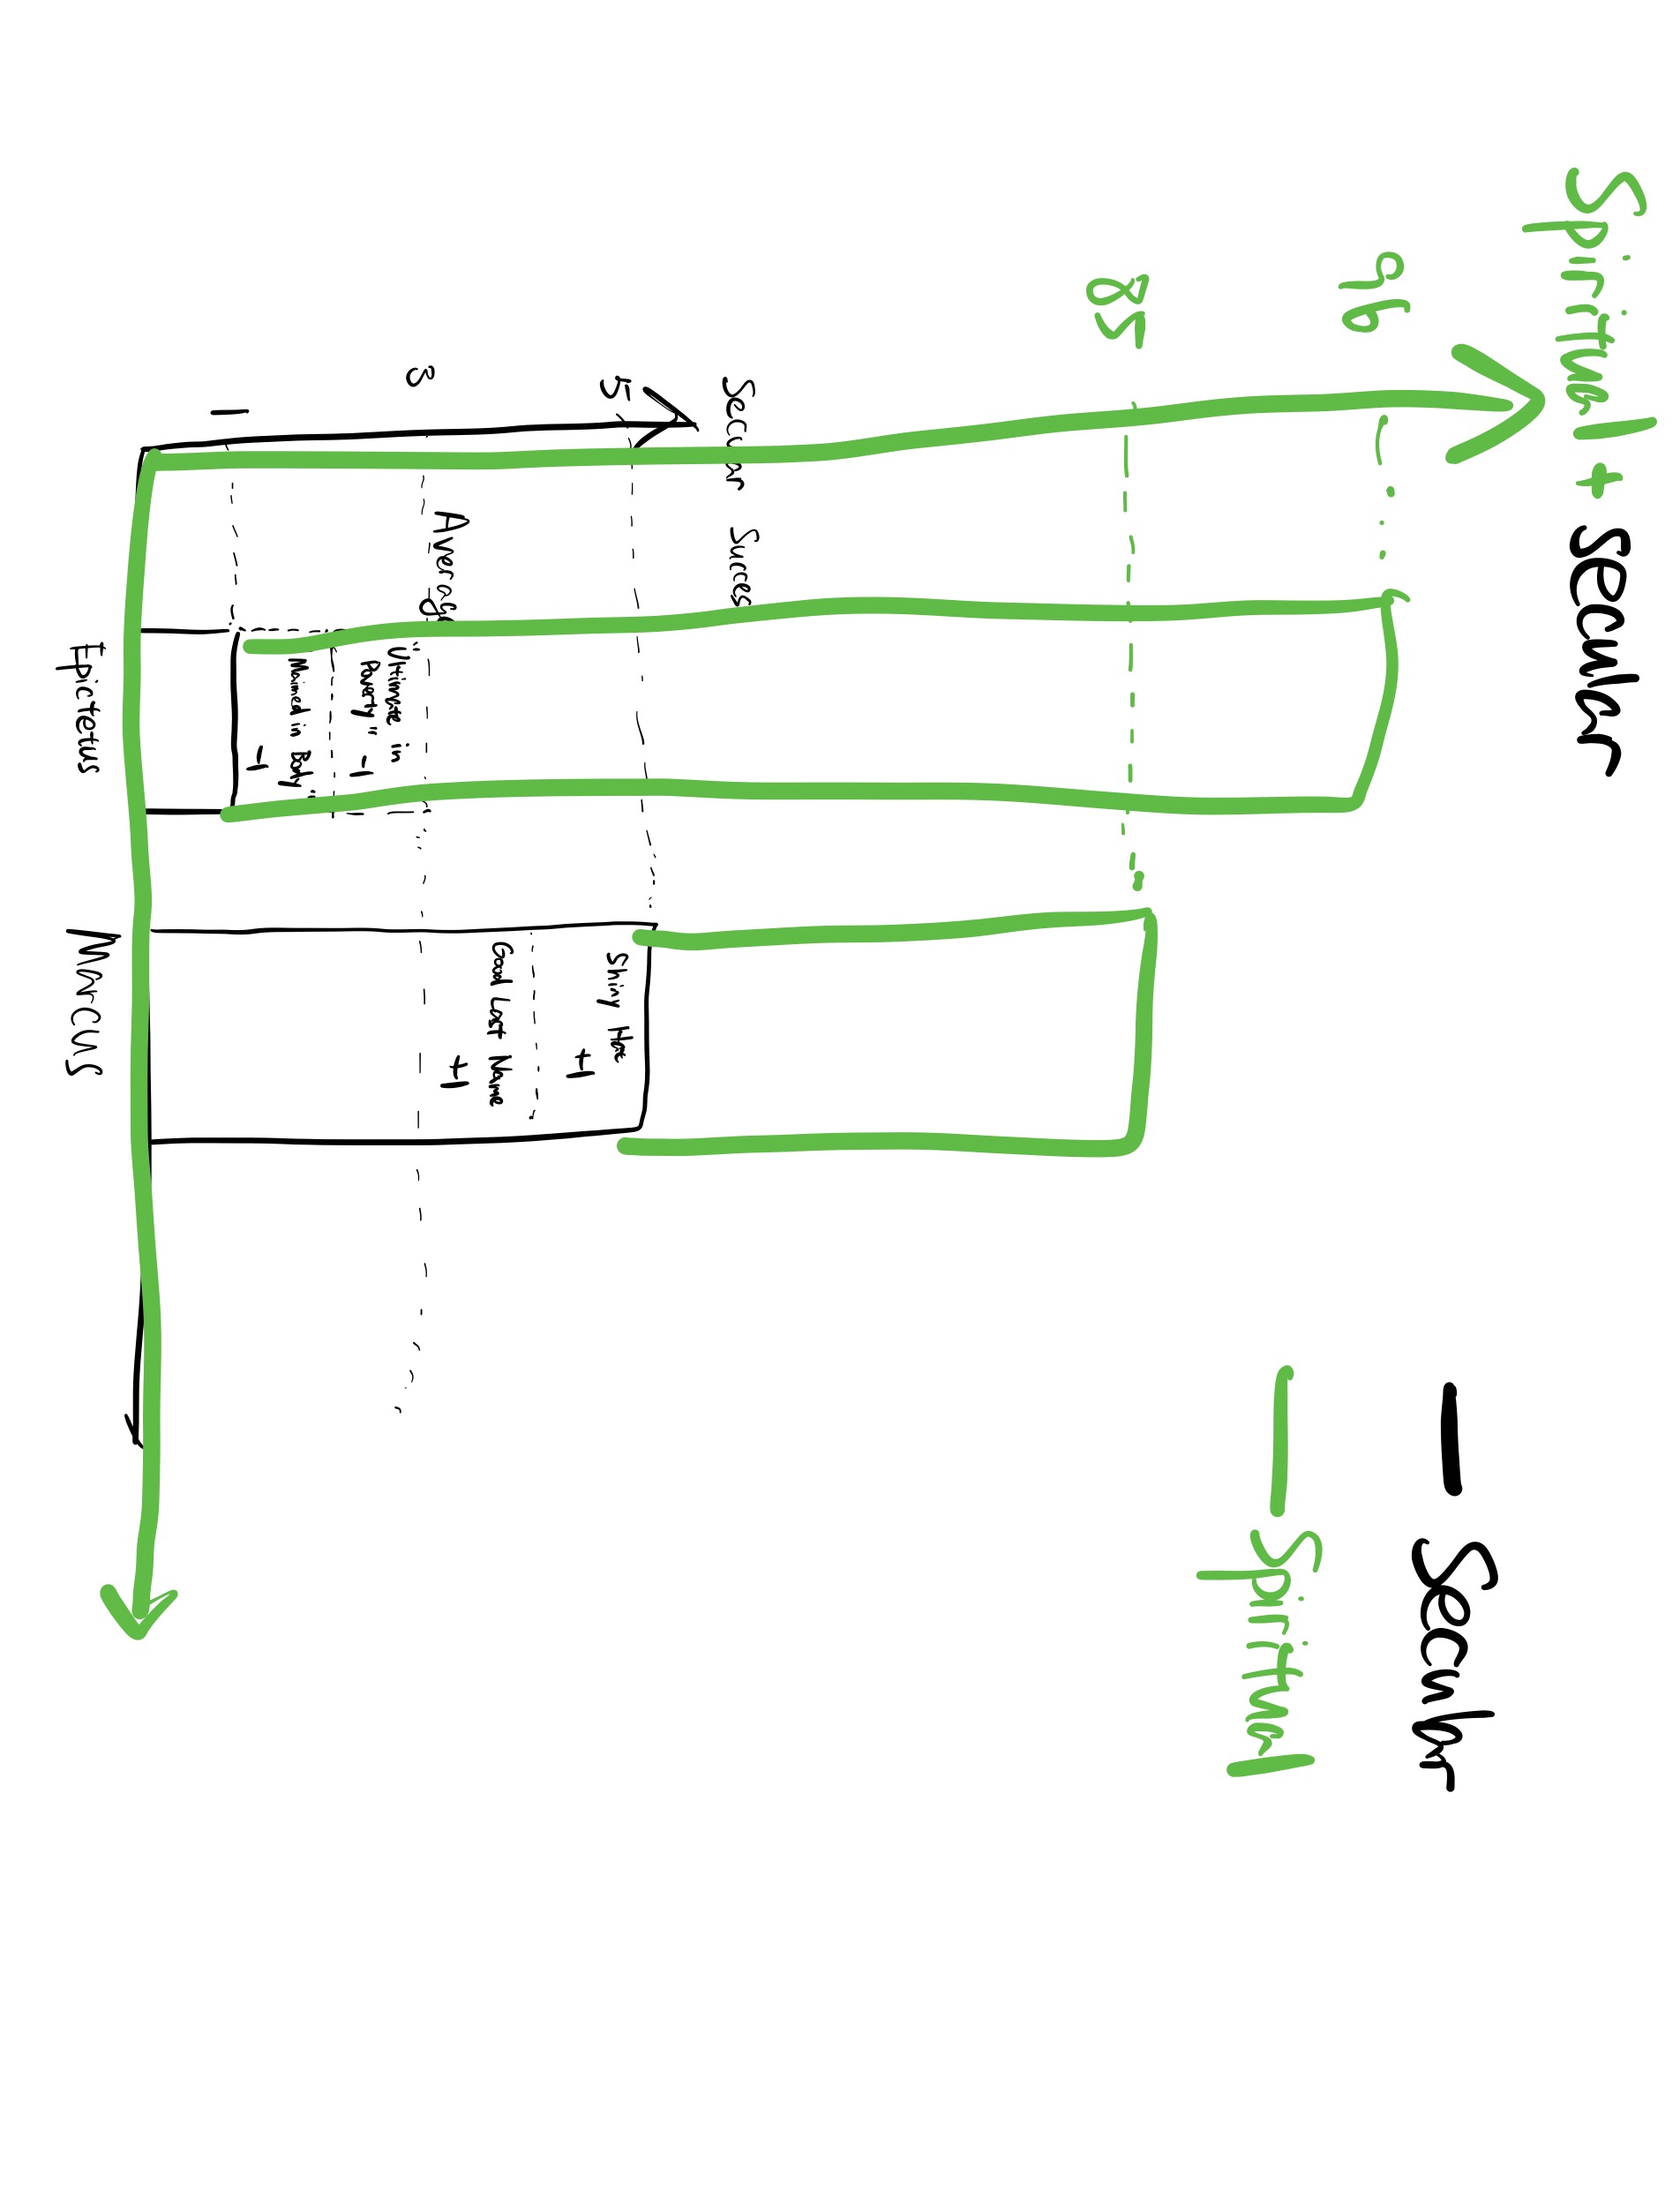 Spiritual + secular
Secular
96
Spiritual
85
Secular Success
5
Shiny Hat
+1
Good Last Name
+1
Average
3
"Vintage in
Poverty" -1
"Maimed in Body"
-1
1
Epictetus
Marcus